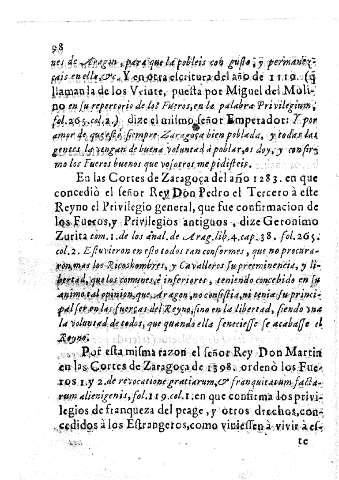 98
nes de Aragon, para que la pobleis con gusto, y permanez-
cais en ella, &c. Y en otra escritura del año de 1119. (q̃
llaman la de los Veinte, puesta por Miguel del Moli-
no en su repertorio de los Fueros, en la palabra Privilegium,
fol. 265. col. 2.) dize el mismo señor Emperador: Y por
amor de que esté siempre Zaragoça bien poblada, y todas las
gentes la tengan de buena voluntad à poblar, os doy, y confir-
mo los Fueros buenos que vosotros me pidisteis.
En las Cortes de Zaragoça del año 1283. en que
concediò el señor Rey Don Pedro el Tercero à este
Reyno el Privilegio general, que fue confirmacion de
los Fueros, y Privilegios antiguos, dize Geronimo
Zurita tom. 1. de los ánal. de Arag. lib. 4. cap. 38. fol. 265.
col. 2. Estuvieron en esto todos tan conformes, que no procura-
ron, mas los Ricoshombres, y Cavalleros su preeminencia, y li-
bertad, que los comunes, è inferiores, teniendo concebido en su
animo tal opinion, que Aragon, no consistia, ni tenia su princi-
pal ser en las fuerças del Reyno, sino en la libertad, siendo vna
la voluntad de todos, que quando ella feneciesse se acabasse el
Reyno.
Por esta misma razon el señor Rey Don Martin
en las Cortes de Zaragoça de 1398. ordenò los Fue-
ros 1. y 2. de revocatione gratiarum, & franquitatum facta-
rum alienigenis, fol. 119. col. 1. en que confirma los privi-
legios de franqueza del peage, y otros drechos, con-
cedidos à los Estrangeros, como viniessen à vivir à es-
te